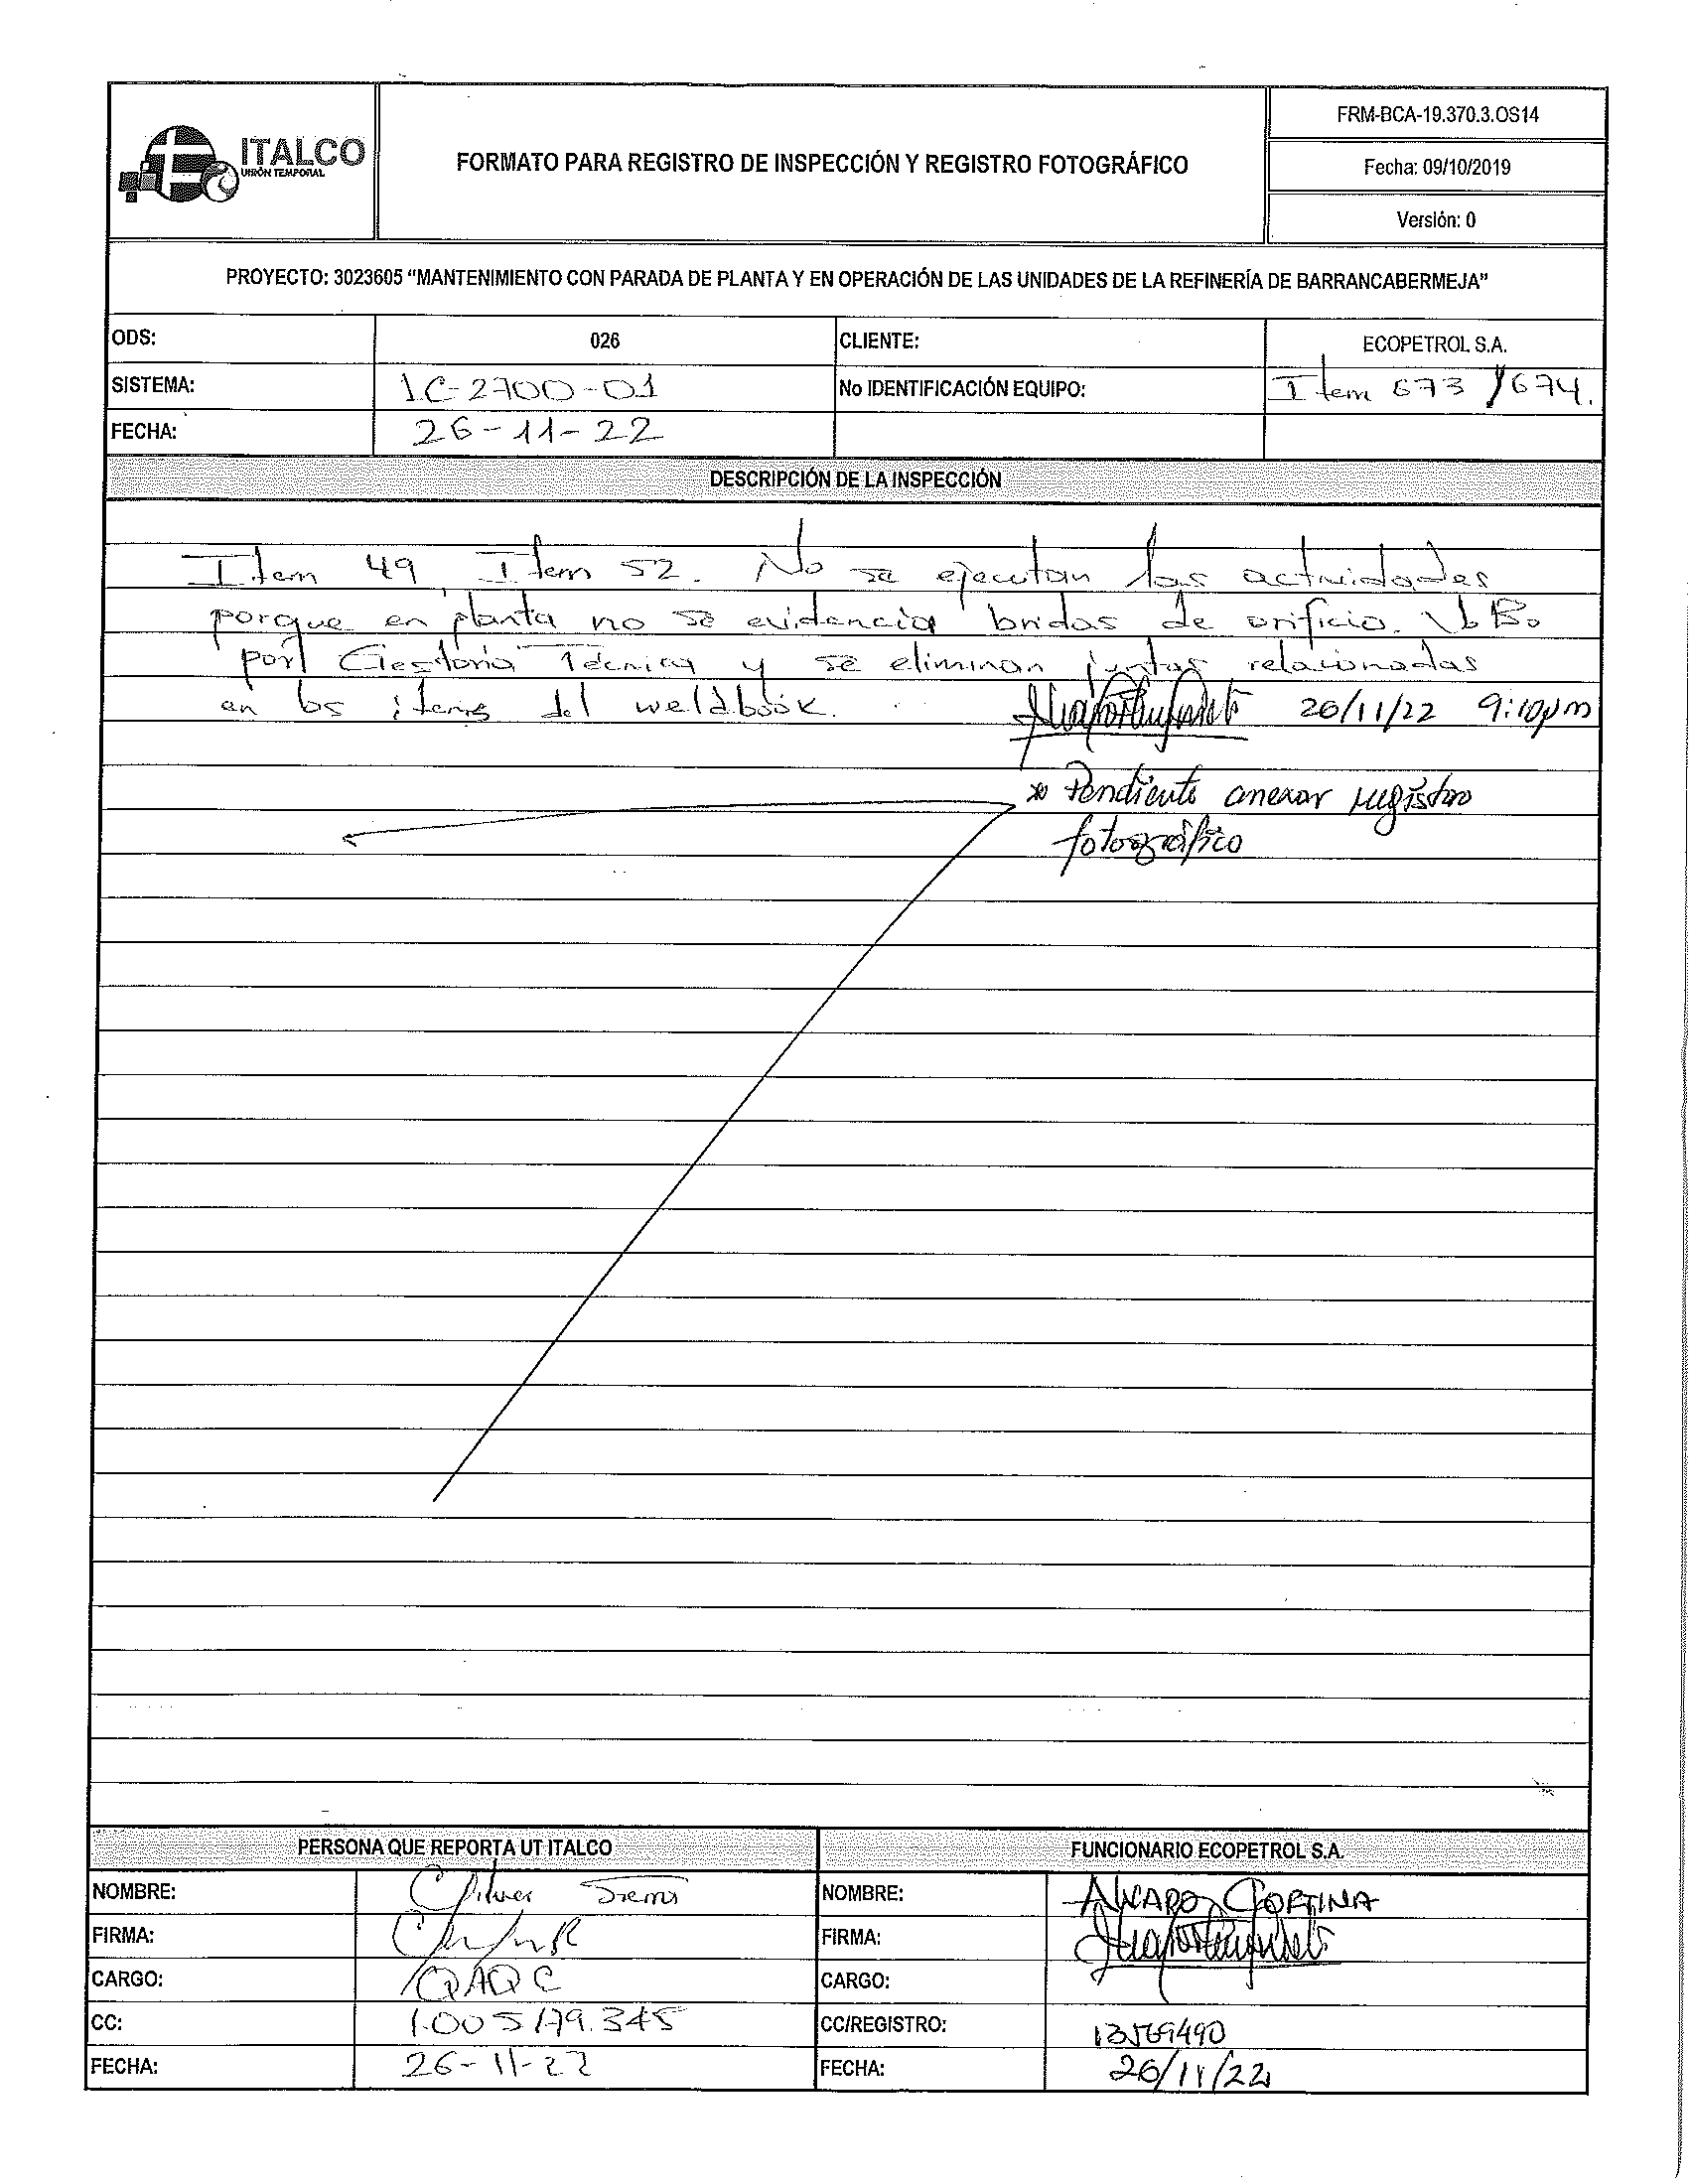 ITALCO
UNIÓN TEMPORAL
FORMATO PARA REGISTRO DE INSPECCIÓN Y REGISTRO FOTOGRÁFICO
FRM-BCA-19.370.3.OS14
Fecha: 09/10/2019
Versión: 0
PROYECTO: 3023605 “MANTENIMIENTO CON PARADA DE PLANTA Y EN OPERACIÓN DE LAS UNIDADES DE LA REFINERÍA DE BARRANCABERMEJA”
ODS: 026 CLIENTE: ECOPETROL S.A.
SISTEMA: 1C-2700-01 No IDENTIFICACIÓN EQUIPO: Item 673 / 674.
FECHA: 26-11-22
DESCRIPCIÓN DE LA INSPECCIÓN
Item 49, Item 52. No se ejecutan las actividades
porque en planta no se evidencia bridas de orificio. VoBo
por Gestoria Técnica y se eliminan juntas relacionadas
en los items del weldbook. 26/11/22 9:10pm
* Pendiente anexar registro
fotográfico
PERSONA QUE REPORTA UT ITALCO
NOMBRE:
FIRMA:
CARGO: QAQC
CC: 1.005179.345
FECHA: 26-11-22
FUNCIONARIO ECOPETROL S.A.
NOMBRE: ALVARO CORTINA
FIRMA:
CARGO:
CC/REGISTRO: 13569490
FECHA: 26/11/22